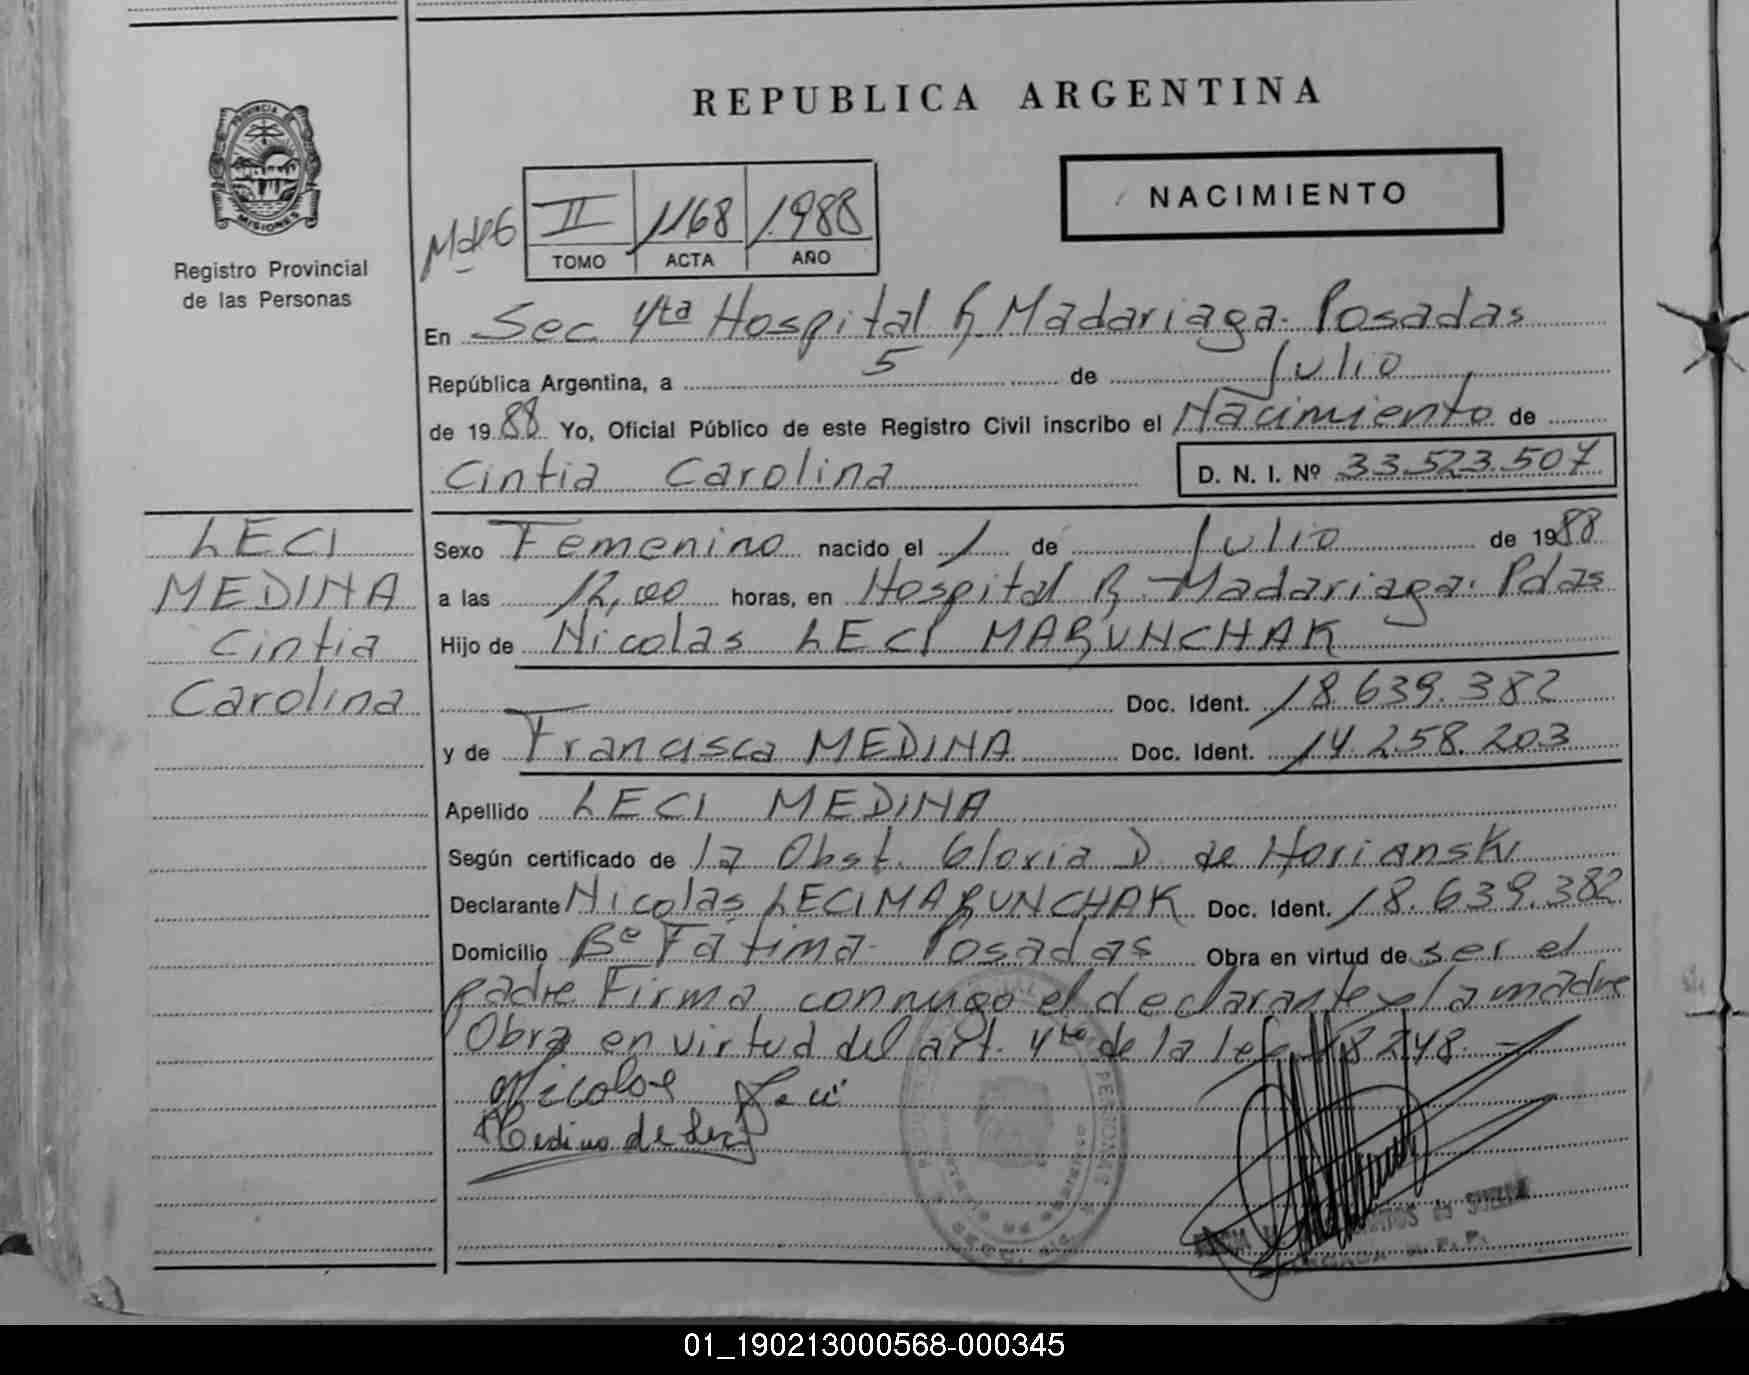 REPUBLICA ARGENTINA
PROVINCIA DE
MISIONES
Registro Provincial
de las Personas
NACIMIENTO
II 1168 1.988
TOMO ACTA AÑO
En Sec 4ta Hospital R Madariaga. Posadas
República Argentina, a 5 de Julio
de 1988 Yo, Oficial Público de este Registro Civil inscribo el Nacimiento de
Cintia Carolina D. N. I. Nº 33.523.507
LECI
MEDINA
Cintia
Carolina
Sexo Femenino nacido el 1 de Julio de 1988
a las 12,00 horas, en Hospital R. Madariaga. Pdas
Hijo de Nicolas LECI MARUNCHAK
Doc. Ident. 18.639.382
y de Francisca MEDINA Doc. Ident. 14.258.203
Apellido LECI MEDINA
Según certificado de la Obst. Gloria D. de Horianski
Declarante Nicolas LECI MARUNCHAK Doc. Ident. 18.639.382
Domicilio Bº Fátima - Posadas Obra en virtud de ser el
padre Firma conmigo el declarante y la madre
Obra en virtud del art. 4to de la ley 18248. -
Nicolas Leci
Medina de Leci
01_190213000568-000345